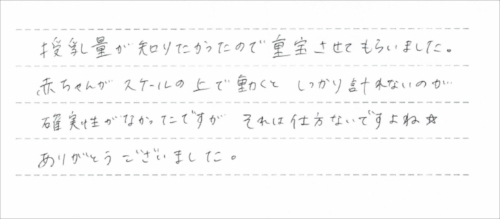 授乳量が知りたかったので重宝させてもらいました。
赤ちゃんがスケールの上で動くと しっかり計れないのが
確実性がなかったですが それは仕方ないですよね☆
ありがとうございました。